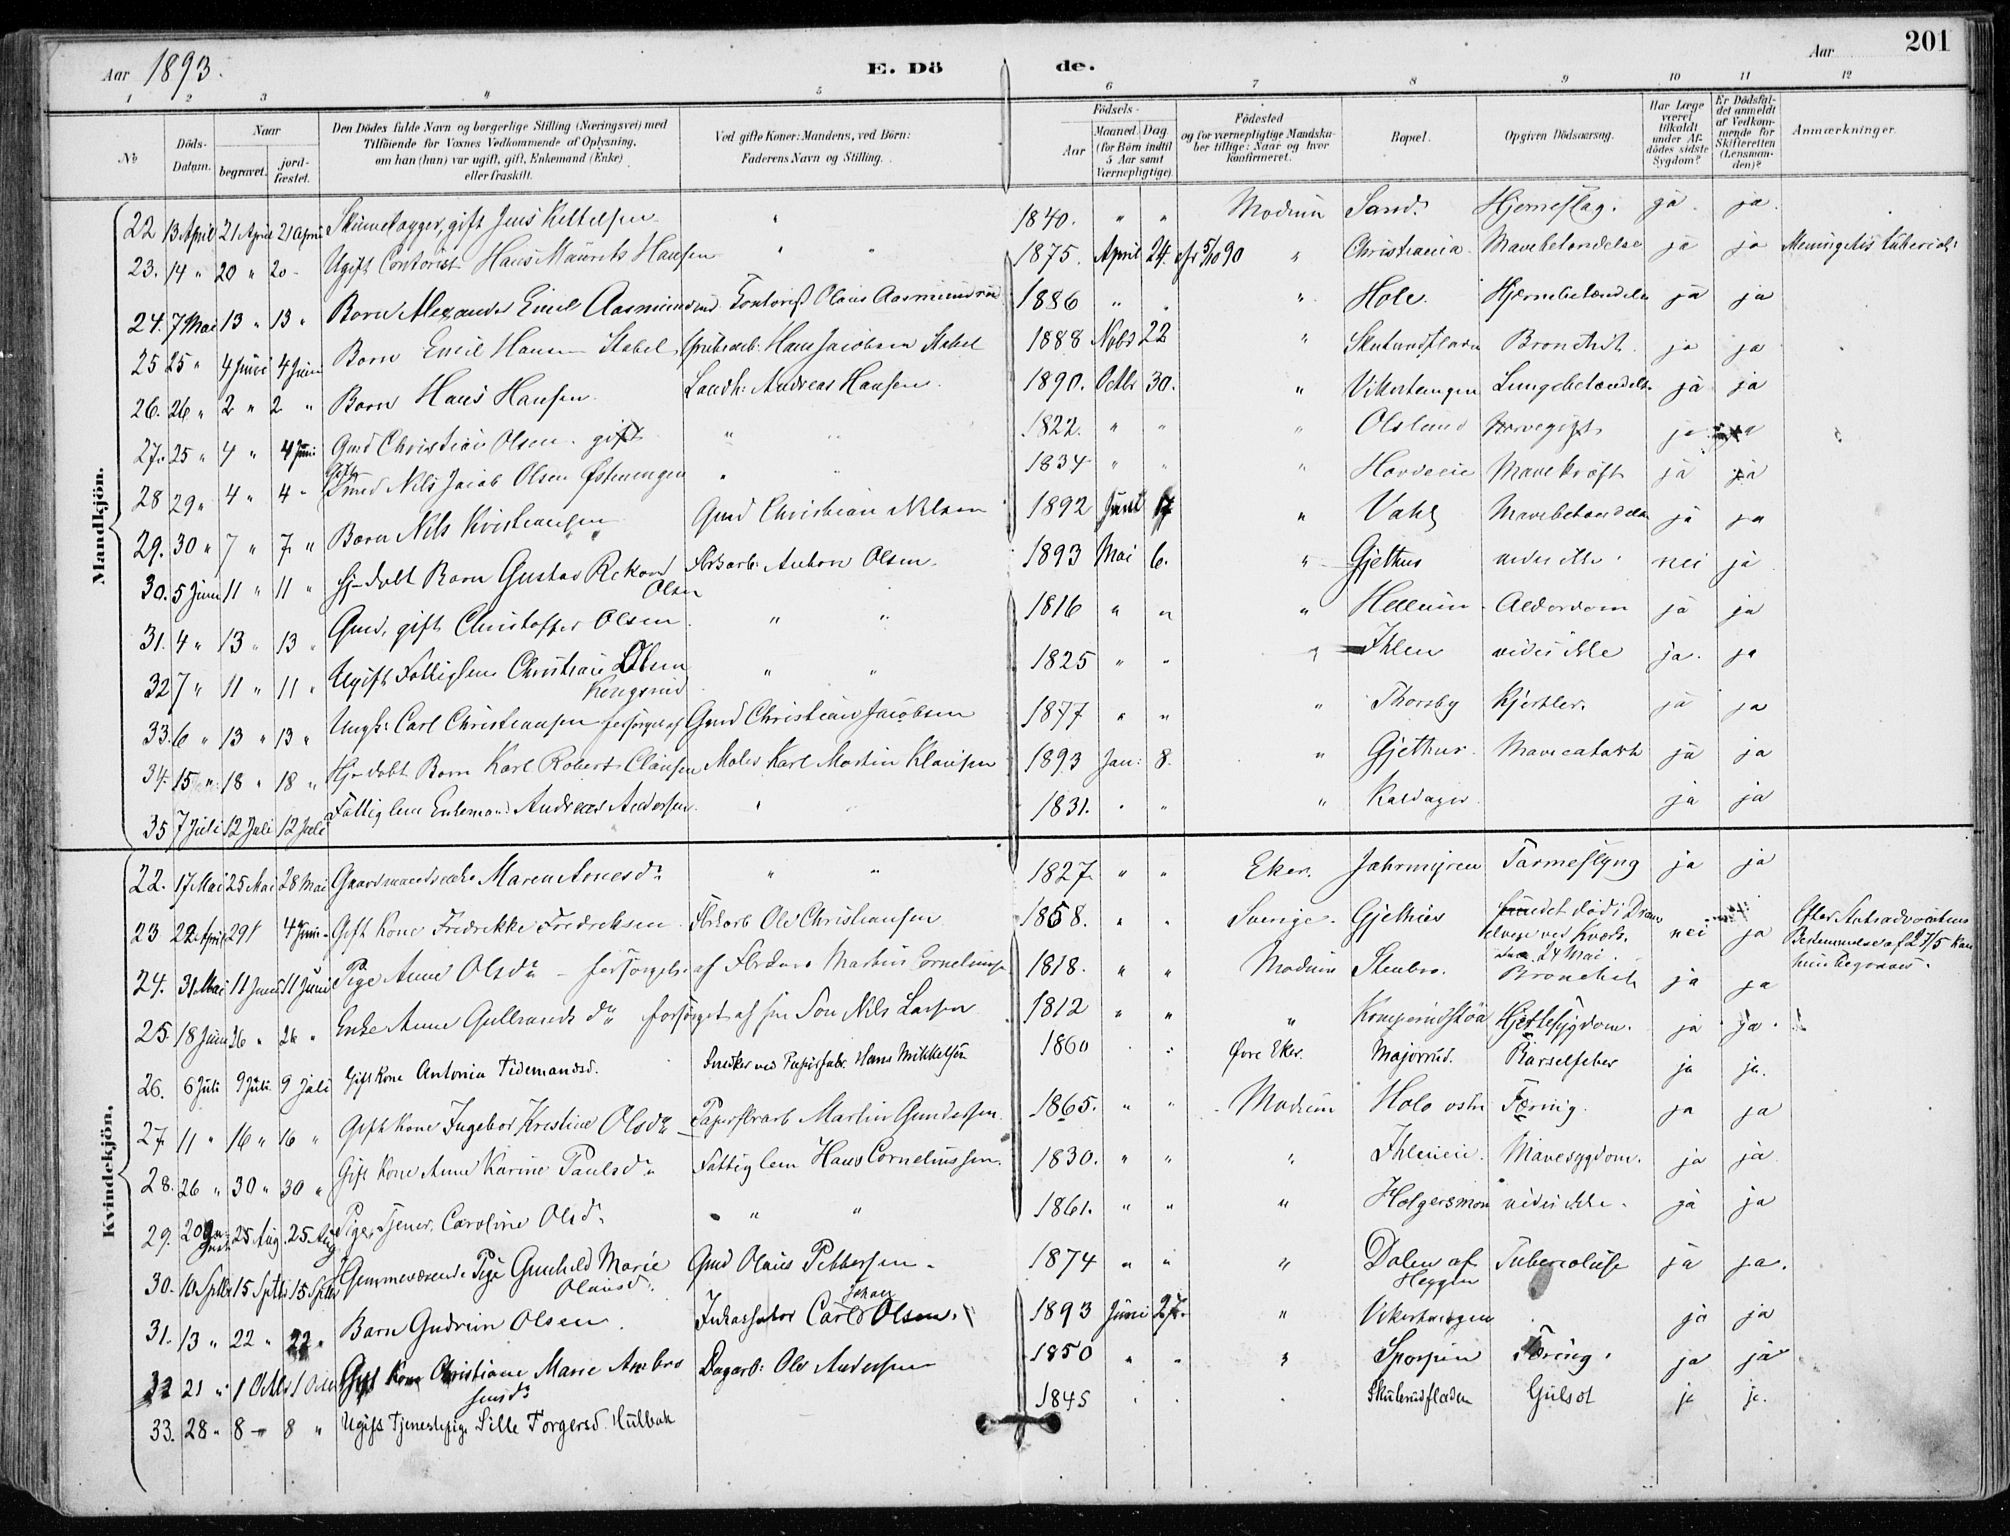 201
Aar 1893. E. Dö de. Aar
1 2 3 4 5 6 7 8 9 10 11 12
No Döds-Datum. Naar begravet. jord-fæstet. Den Dödes fulde Navn og borgerlige Stilling (Næringsvei) med Tilföiende for Voxnes Vedkommende af Oplysning, om han (hun) var ugift, gift, Enkemand (Enke) eller fraskilt. Ved gifte Koner: Mandens, ved Börn: Faderens Navn og Stilling. Födsels- Aar Maaned. Dag (for Börn indtil 5 Aar samt Værnepligtige). Födested og for værnepligtige Mandskaber tillige: Naar og hvor konfirmeret. Bopæl. Opgiven Dödsaarsag. Har Læge været tilkaldt under Afdödes sidste Sygdom? Er Dödsfaldet anmeldt af Vedkommende for Skifteretten (Lensmanden)? Anmærkninger.
Mandkjön.
22 13 April 21 April 21 April gift Jens Kittelsen " 1840. " " Modum Sand. Hjerneslag. ja ja.
23. 14 " 20 " 20 - Ugift Contorist Hans Maurits Hansen " " 1875. April 24. 5/10 90 " Christiania Mavebetændelse ja ja
24. 7 Mai 13 " 13 " Barn Alexander Emil Aasmundrud Olaus Aasmundrud 1886 " " " Hole. Hjernebetændelse ja ja
25 25 " 4 Juni 4 Juni Barn Emil Hansen Stabel Hans Jacobsen Stabel 1888 Novbr 22 " Skutrudfladen Bronchit ja ja
26. 26 " 2 " 2 " Barn Hans Hansen Landh: Andreas Hansen. 1890. Octbr 30. " Vikerhaugen Lungebetændelse ja ja
27. 25 " 4 " 4 Juni Gmd Christian Olsen gift " " 1822. " " " Olslund ja
28 29 " 4 " 4 " Gift Smed Nils Jacob Olsen Østmengen " " 1834 " " " Mavekræft ja ja
29. 30 " 7 " 7 " Barn Nils Kristiansen Gmd Christian Nilsen 1892 Juni 17 " Mavebetændelse ja ja
30. 5 Juni 11 " 11 " Hj-døbt Barn Gustav Rekord Olsen Fbkarb: Anton Olsen. 1893 Mai 6. " Gjethus vides ikke nei ja
31. 4 " 13 " 13 " Gmd, gift Christoffer Olsen " " 1816 " " " Hellum Alderdom ja ja
32 7 " 11 " 11 " Ugift Fattiglem Christian Olsen Kongsrud " " 1825 " " " Ihlen vides ikke ja. ja
33. 6 " 13 " 13 " Ungk: Carl Christiansen forsørget af Gmd Christian Jacobsen 1877 " " " Thorsby Kjertler. ja ja
34. 15 " 18 " 18 " Hj-døbt Barn Karl Robert Clausen Maler Karl Martin Klausen 1893 Jan: 8. " Gjethus. Mavecatarh ja ja
35 7 Juli 12 Juli 12 Juli Fattiglem Enkemand Andreas Andersen " " 1831. " " " Kaldager ja ja
Kvindekjön.
22. 17 Mai 25 Mai 28 Mai Gaardmandsenke Maren Arnesdr " " 1827 " " Eker. Jahrmyren Tarmeslyng ja ja
23 22 April 29/ 4 Juni Gift Kone Fredrikke Fredriksen Fbkarb Ole Christiansen 1858. " " Sverige. Gjethus fundet død i Dramselven ved 24 Mai. nei ja Efter Bestemmelse af 27/5 kan hun begraves.
24. 31 Mai 11 Juni 11 Juni Pige Anne Olsdr - forsørget af Martin Corneliusen 1818. " " Modum Stenbro. Bronchit ja ja
25. 18 Juni 26 " 26 " Enke Anne Gulbrandsdr forsørget af sin Søn Nils Larsen 1812 " " " Komperudstøa Hjertesygdom. ja ja.
26. 6 Juli 9 Juli 9 Juli Gift Kone Antonia Tidemandsd. Snedker ved Papirfabr. Hans Mikkelsen 1860 " " Øvre Eker. Majorrud. Barselfeber ja ja.
27 11 " 16 " 16 " Gift Kone Ingebor Kristine Olsdr Martin Gundersen. 1865. " " Modum Hole østre Tæring. ja ja
28. 26 " 30 " 30 " Gift Kone Anne Karine Paulsdr Fattiglem Hans Corneliussen. 1830. " " " Ihleneie. Mavesygdom. ja ja
29. 20 August 25 Aug. 25 Aug Pige, Tjener, Caroline Olsdr " " 1861. " " " Holgersmoen vides ikke. ja ja
30. 10 Septbr 15 Septbr 15 Septbr Hjemmeværende Pige Gunhild Marie Olausdr Gmd Olaus Pettersen. 1874 " " " Dalen af Heggen Tuberculose ja ja.
31. 13 " 22 " 22 " Barn Gudrun Olsen. Inkassator Carl Johan Olsen. 1893 Juni 27. " Vikerhaugen ja ja
32 21 " 1 Octbr 1 Octbr Gift Kone Christiane Marie Ambrosiusdr Dagarb: Ole Andersen 1850 " " " Tæring. ja ja
33. 28 " 8 " 8 " Ugift Tjenestepige Sille Torgersd. Hulbak 1845 " " " Skutrudfladen Gulsot ja ja.